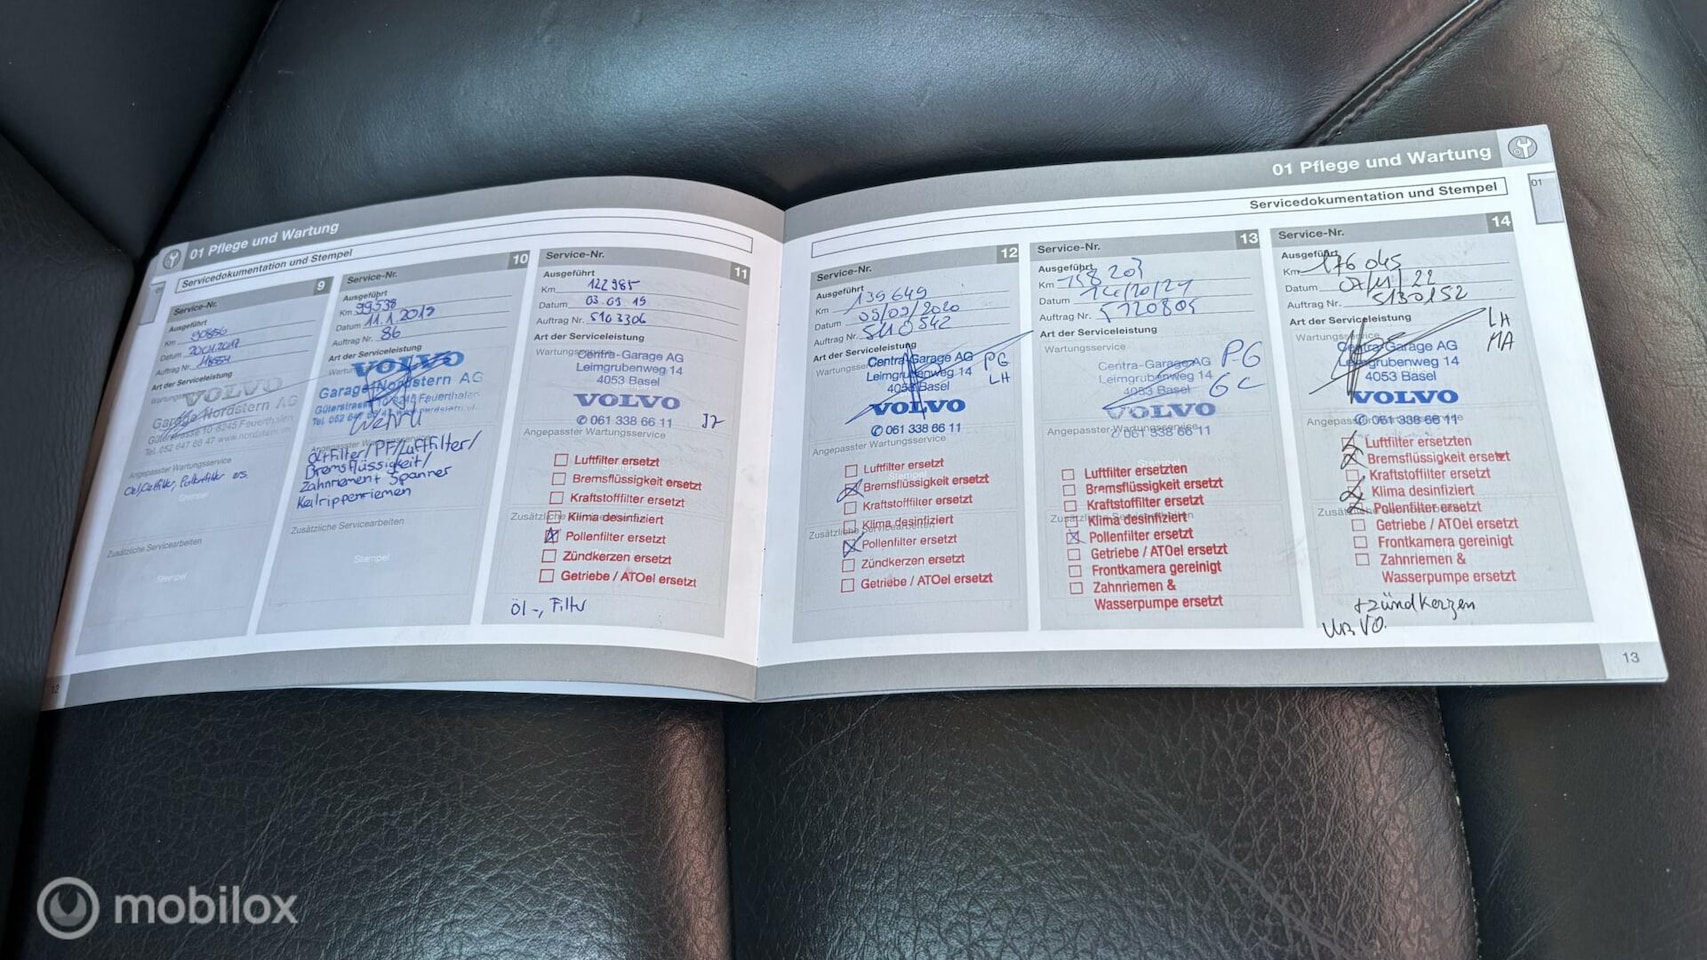 01 Pflege und Wartung
Servicedokumentation und Stempel
Service-Nr. 9
Ausgeführt
Km
Datum
Auftrag Nr.
Art der Serviceleistung
VOLVO
Garage Nordstern AG
Angepasster Wartungsservice
Zusätzliche Servicearbeiten
Stempel
Service-Nr. 10
Ausgeführt
Km 99538
Datum 11.1.2018
Auftrag Nr. 86
Art der Serviceleistung
VOLVO
Garage Nordstern AG
Güterstrasse 10 8245 Feuerthalen
Ölfilter/PF/Luftfilter/
Bremsflüssigkeit/
Zahnriemen + Spanner
Keilrippenriemen
Zusätzliche Servicearbeiten
Stempel
Service-Nr. 11
Ausgeführt
Km 122985
Datum 03.09 19
Auftrag Nr. 5103306
Art der Serviceleistung
Centra-Garage AG
Leimgrubenweg 14
4053 Basel
VOLVO
✆ 061 338 66 11
Angepasster Wartungsservice
Luftfilter ersetzt
Bremsflüssigkeit ersetzt
Kraftstoffilter ersetzt
Klima desinfiziert
Pollenfilter ersetzt
Zündkerzen ersetzt
Getriebe / ATOel ersetzt
Öl-, Filter
12
01 Pflege und Wartung
01
Servicedokumentation und Stempel
Service-Nr. 12
Ausgeführt
Km 139649
Datum 05/09/2020
Auftrag Nr. 5110542
Art der Serviceleistung
Centra-Garage AG PG
Leimgrubenweg 14 LH
4053 Basel
VOLVO
✆ 061 338 66 11
Angepasster Wartungsservice
Luftfilter ersetzt
Bremsflüssigkeit ersetzt
Kraftstoffilter ersetzt
Klima desinfiziert
Pollenfilter ersetzt
Zündkerzen ersetzt
Getriebe / ATOel ersetzt
Service-Nr. 13
Ausgeführt
Km 158 203
Datum
Auftrag Nr.
Art der Serviceleistung
Wartungsservice
Centra-Garage AG PG
Leimgrubenweg 14 GC
4053 Basel
VOLVO
✆ 061 338 66 11
Luftfilter ersetzten
Bremsflüssigkeit ersetzt
Kraftstoffilter ersetzt
Klima desinfiziert
Pollenfilter ersetzt
Getriebe / ATOel ersetzt
Frontkamera gereinigt
Zahnriemen &
Wasserpumpe ersetzt
Service-Nr. 14
Ausgeführt
Km 176 045
Datum 07/11/22
Auftrag Nr. 5130152
Art der Serviceleistung
LH
MA
Centra-Garage AG
Leimgrubenweg 14
4053 Basel
VOLVO
✆ 061 338 66 11
Luftfilter ersetzten
Bremsflüssigkeit ersetzt
Kraftstoffilter ersetzt
Klima desinfiziert
Pollenfilter ersetzt
Getriebe / ATOel ersetzt
Frontkamera gereinigt
Zahnriemen &
Wasserpumpe ersetzt
+zündkerzen
13
mobilox